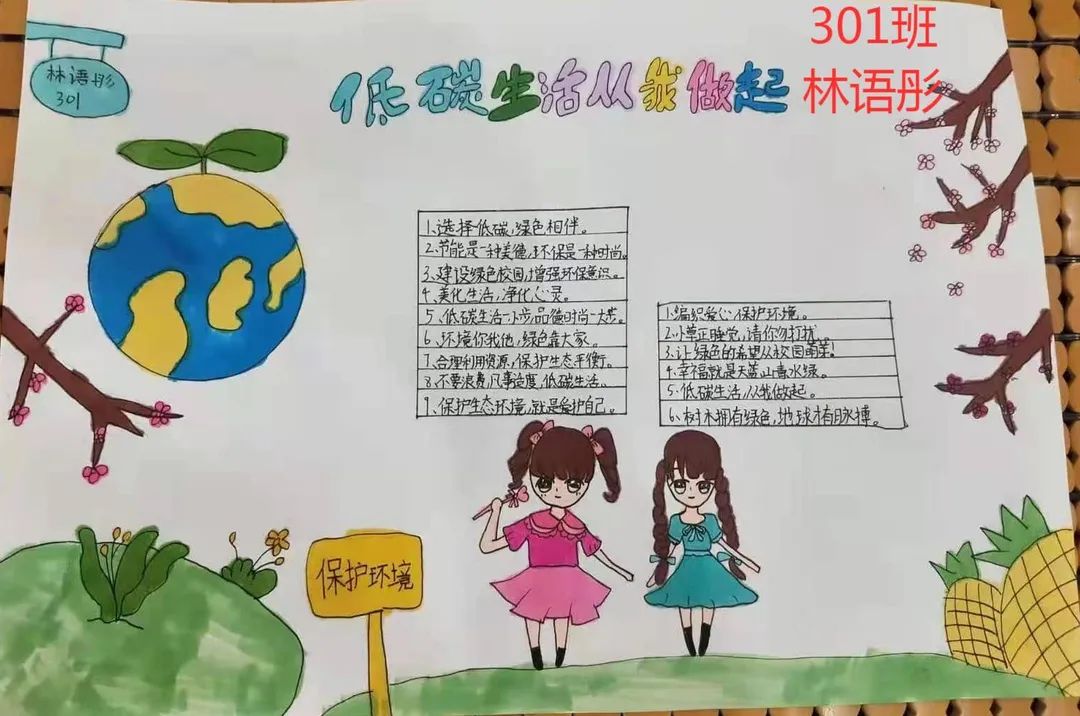 301班
林语彤
林语彤
301
低碳生活从我做起
1、选择低碳,绿色相伴。
2、节能是一种美德,环保是一种时尚。
3、建设绿色校园,增强环保意识。
4、美化生活,净化心灵。
5、低碳生活一小步品德时尚一大步。
6、环境你我他,绿色靠大家。
7、合理利用资源,保护生态平衡。
8、不要浪费,凡事适度,低碳生活。
9、保护生态环境,就是爱护自己。
1、编织爱心保护环境。
2、小草正睡觉,请你勿打扰
3、让绿色的希望从校园萌芽。
4、幸福就是天蓝山青水绿。
5、低碳生活,从我做起。
6、树木拥有绿色,地球才有脉搏。
保护环境